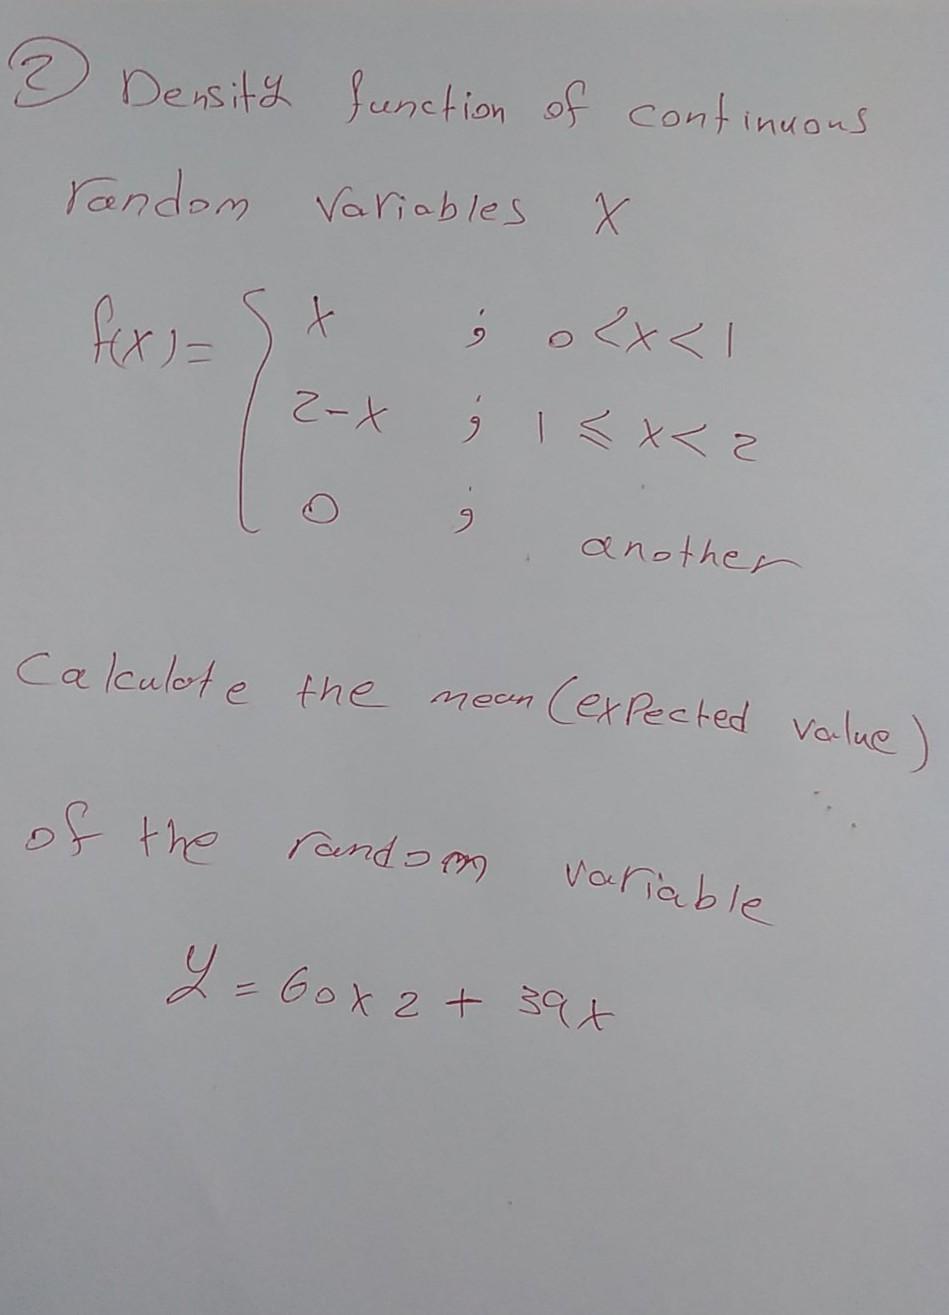 ② Density function of continuous
random variables X
f(x) = { x ; 0 < x < 1
2-x ; 1 ⩽ x < 2
0 ; another
Calculate the mean (expected value)
of the random variable
y = 60x2 + 39x